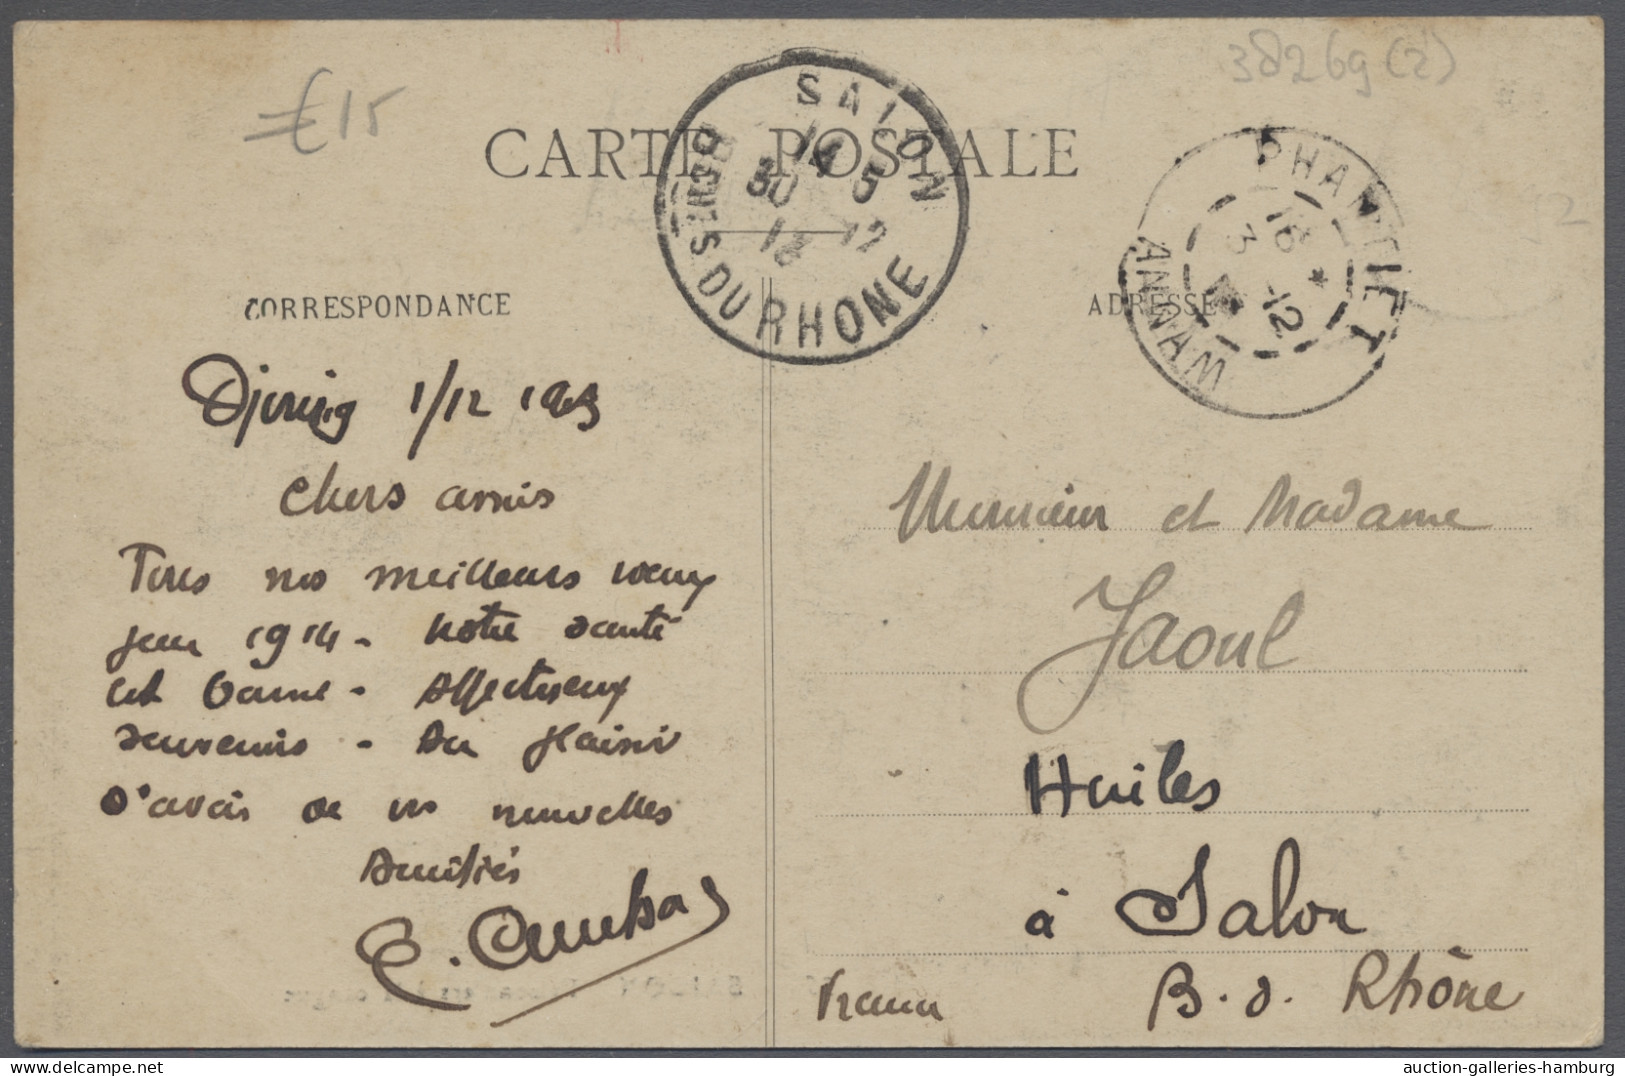 €15
38269(2)
CARTE POSTALE
SALON
BCHES DU RHONE
14 30 5
PHANTIET
ANNAM
16 3 -12
*
CORRESPONDANCE
ADRESSE
Djiring 1/12 1913
Chers amis
Tous nos meilleurs voeux
pour 1914 - Notre santé
est bonne - Affectueux
souvenirs - Au plaisir
d'avoir de vos nouvelles
Amitiés
Monsieur et Madame
Jaoul
Huiles
à Salon
B. d. Rhône
France
delcampe.net
auction-galleries-hamburg